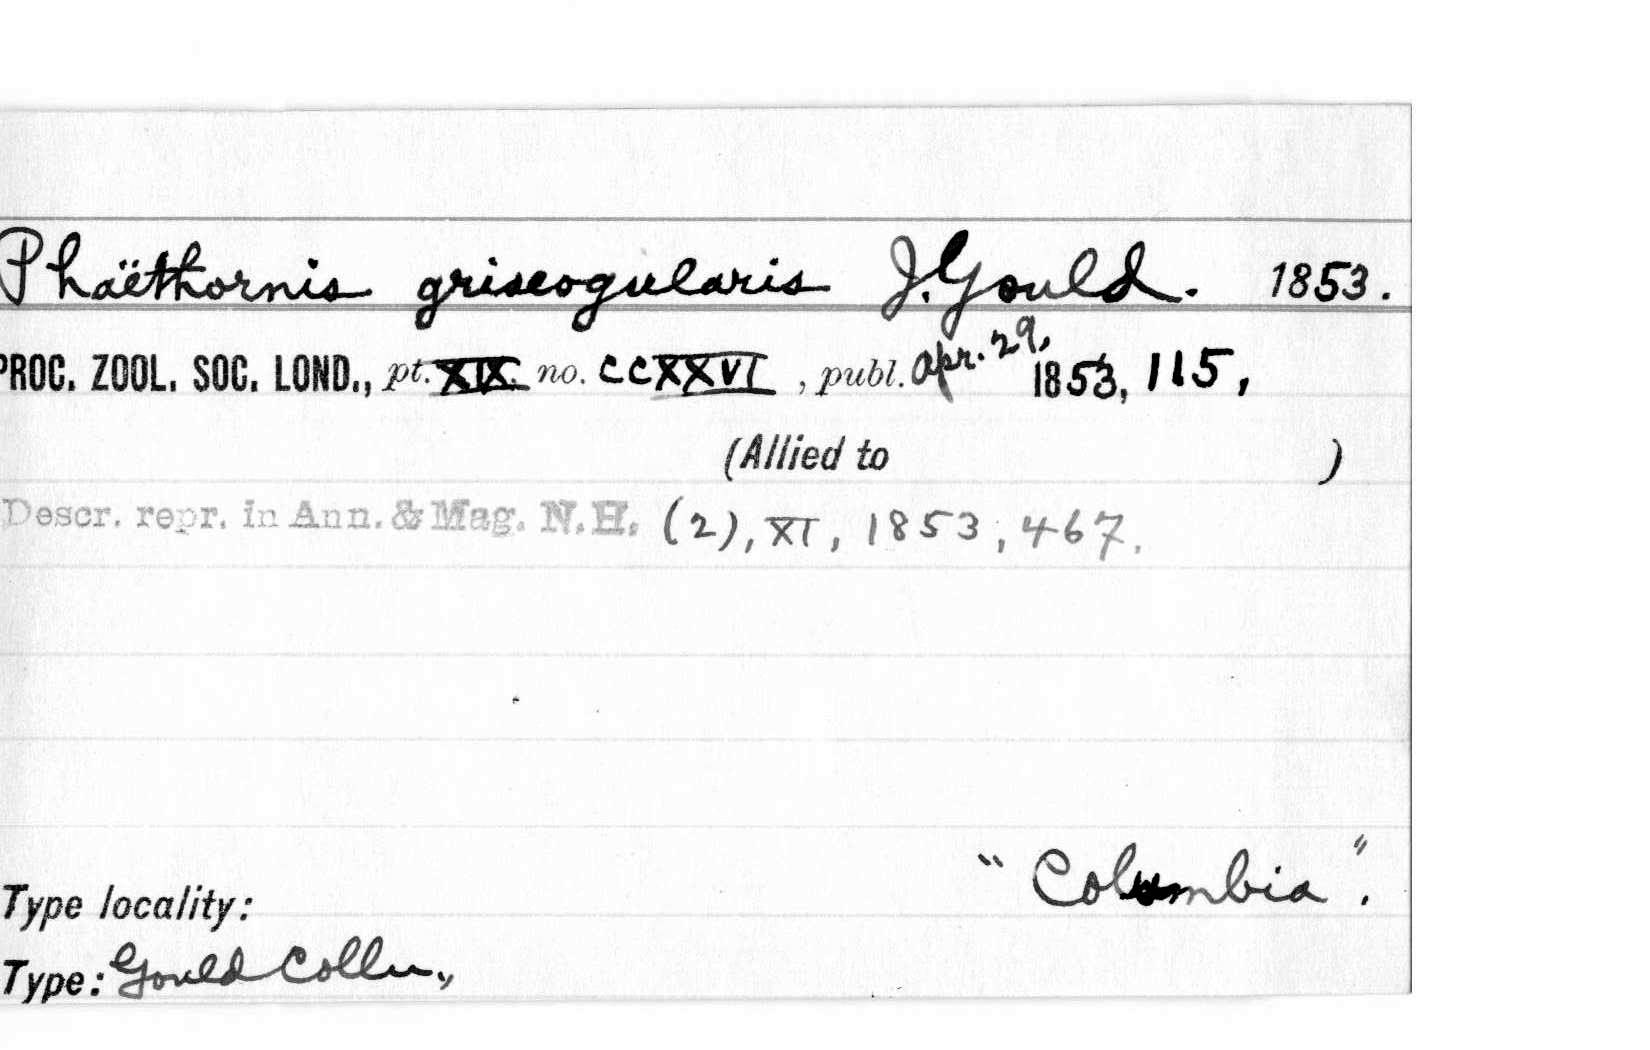 Phaëthornis griseogularis J. Gould. 1853.
PROC. ZOOL. SOC. LOND., pt. XIX. no. CCXXVI , publ. Apr. 29, 1853, 115,
(Allied to )
Descr. repr. in Ann. & Mag. N.H. (2), XI, 1853, 467.
"Columbia".
Type locality:
Type: Gould Colln.,